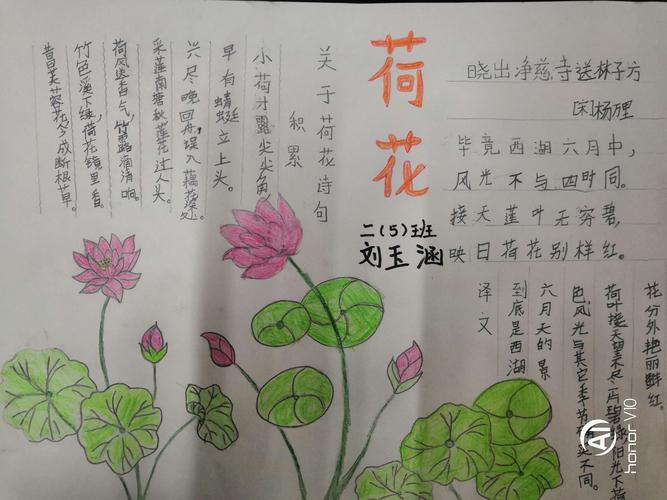 荷花
二(5)班
刘玉涵
晓出净慈寺送林子方
[宋]杨万里
毕竟西湖六月中，
风光不与四时同。
接天莲叶无穷碧，
映日荷花别样红。
译文
到底是西湖
六月天的景
色风光与其它季节 不同。
荷叶接天望不尽 碧绿阳光下荷
花分外艳丽鲜红。
关于荷花诗句
积累
小荷才露尖尖角
早有蜻蜓立上头。
兴尽晚回舟，误入藕花深处
采莲南塘秋莲花过人头。
荷风送香气，竹露滴清响。
竹色溪下绿，荷花镜里香。
昔日芙蓉花今成断根草。
AI
honor V10